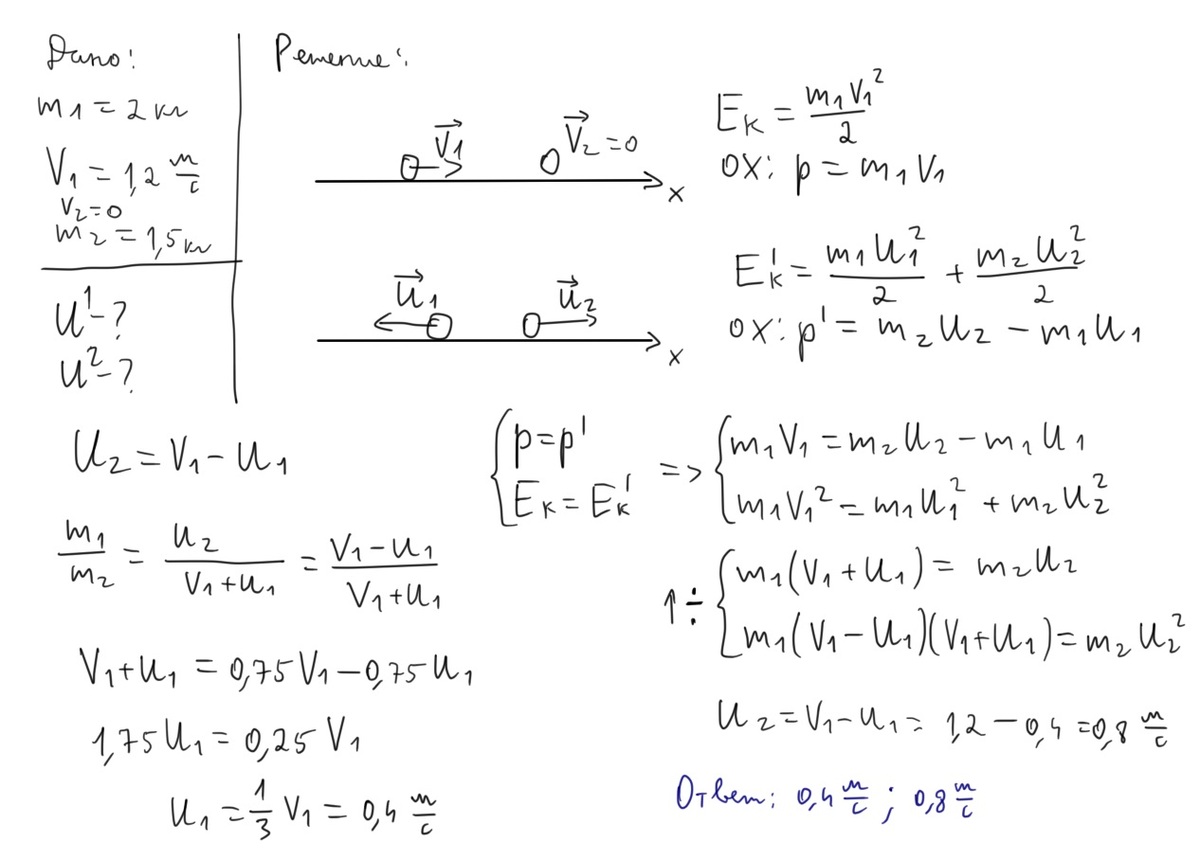 Дано:
m₁ = 2 кг
V₁ = 1,2 м/с
V₂ = 0
m₂ = 1,5 кг
U¹ - ?
U² - ?
Решение:
V⃗₁
V⃗₂ = 0
x
Eₖ = m₁V₁²/2
OX: p = m₁V₁
u⃗₁
u⃗₂
x
Eₖ' = m₁U₁²/2 + m₂U₂²/2
OX: p' = m₂U₂ - m₁U₁
{ p = p'
Eₖ = Eₖ'
=> { m₁V₁ = m₂U₂ - m₁U₁
m₁V₁² = m₁U₁² + m₂U₂²
1 ÷ { m₁(V₁ + U₁) = m₂U₂
m₁(V₁ - U₁)(V₁ + U₁) = m₂U₂²
U₂ = V₁ - U₁
m₁/m₂ = U₂/(V₁ + U₁) = (V₁ - U₁)/(V₁ + U₁)
V₁ + U₁ = 0,75V₁ - 0,75U₁
1,75U₁ = 0,25V₁
U₁ = 1/3 V₁ = 0,4 м/с
U₂ = V₁ - U₁ = 1,2 - 0,4 = 0,8 м/с
Ответ: 0,4 м/с; 0,8 м/с